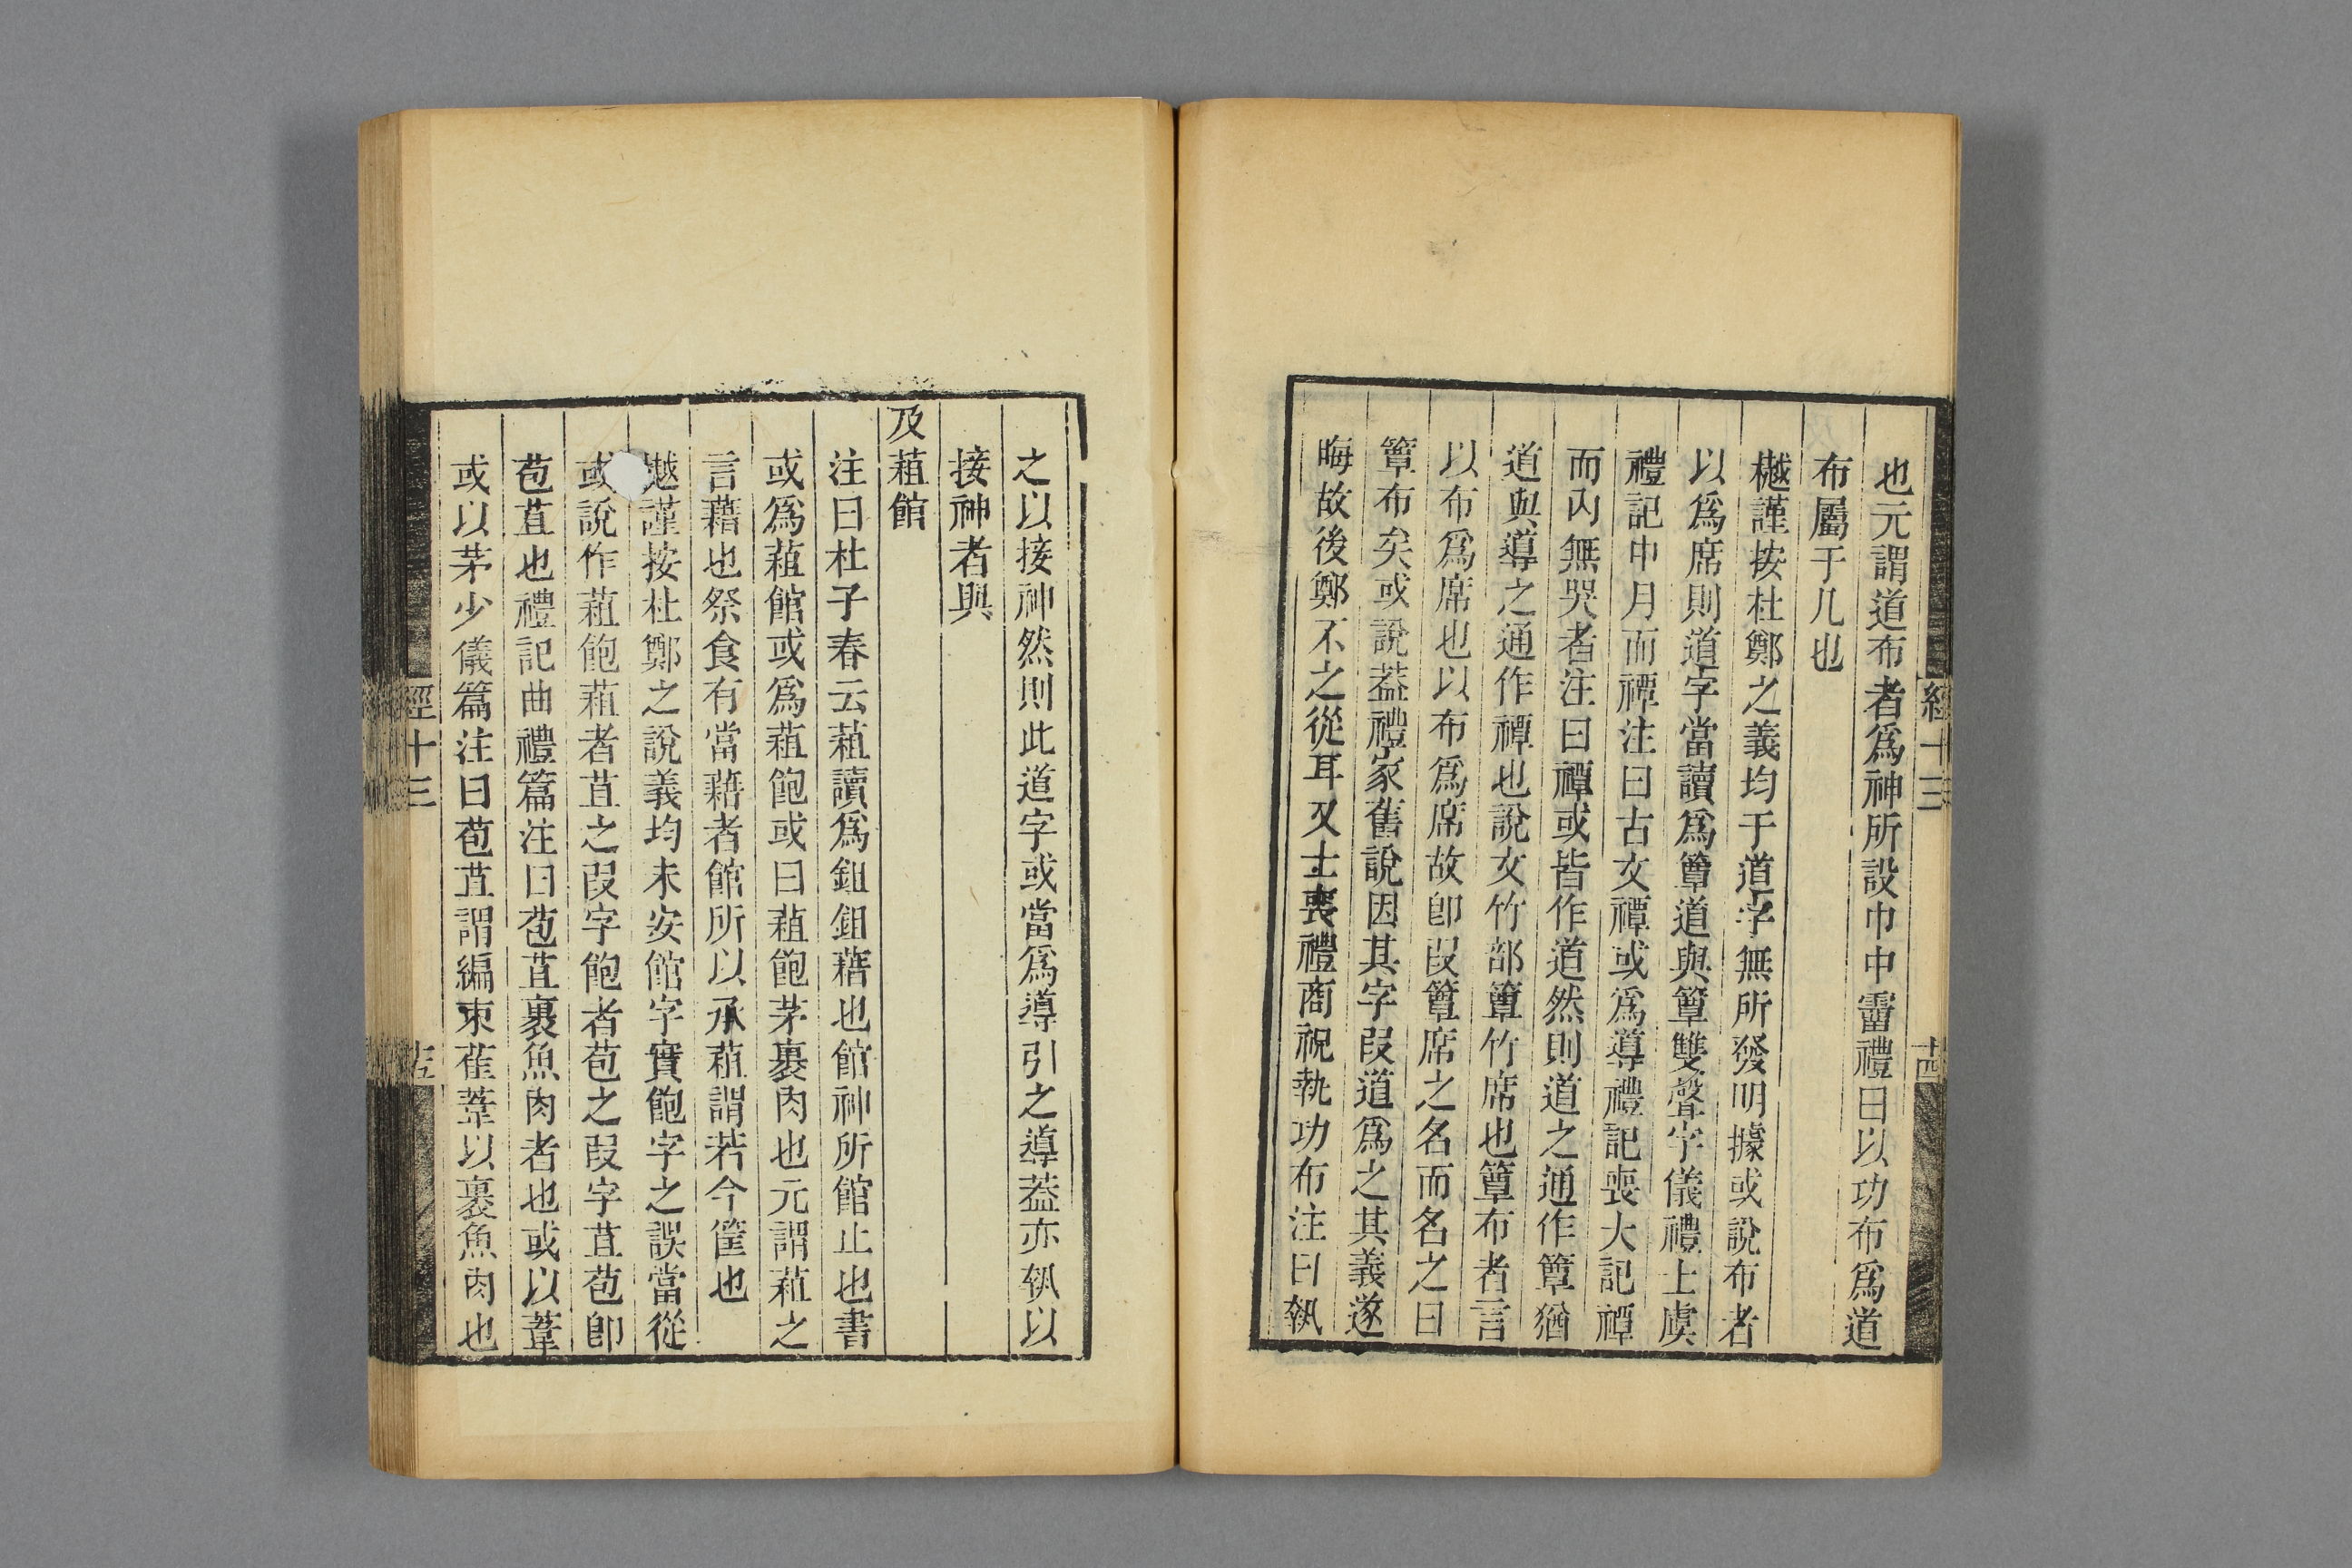 也元謂道布者爲神所設巾中霤禮曰以功布爲道
布屬于几也
樾謹按杜鄭之義均于道字無所發明據或說布者
以爲席則道字當讀爲簟道與簟雙聲字儀禮士虞
禮記中月而禫注曰古文禫或爲導禮記喪大記禫
而內無哭者注曰禫或皆作道然則道之通作簟猶
道與導之通作禫也說文竹部簟竹席也簟布者言
以布爲席也以布爲席故卽叚簟席之名而名之曰
簟布矣或說葢禮家舊說因其字叚道爲之其義遂
晦故後鄭不之從耳又士喪禮商祝執功布注曰執
經十三
十四
之以接神然則此道字或當爲導引之導葢亦執以
接神者與
及葅館
注曰杜子春云葅讀爲鉏鉏藉也館神所館止也書
或爲葅館或爲葅飽或曰葅飽茅裹肉也元謂葅之
言藉也祭食有當藉者館所以承葅謂若今筐也
樾謹按杜鄭之說義均未安館字實飽字之誤當從
或說作葅飽葅者苴之叚字飽者苞之叚字苴苞卽
苞苴也禮記曲禮篇注曰苞苴裹魚肉者也或以葦
或以茅少儀篇注曰苞苴謂編束萑葦以裹魚肉也
經十三
十五